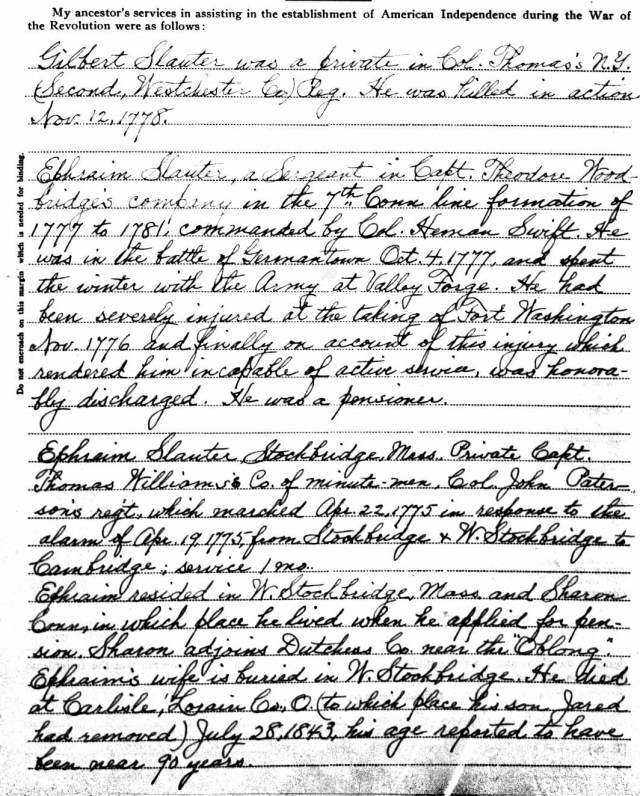 My ancestor's services in assisting in the establishment of American Independence during the War of
the Revolution were as follows:
Gilbert Slauter was a private in Col. Thomas's N.Y.
(Second, Westchester Co.) Reg. He was killed in action
Nov. 12, 1778.
Do not encroach on this margin which is needed for binding.
Ephraim Slauter, a Sergeant in Capt. Theodore Wood-
bridge's company in the 7th Conn line formation of
1777 to 1781, commanded by Col. Heman Swift. He
was in the battle of Germantown Oct. 4, 1777, and spent
the winter with the Army at Valley Forge. He had
been severely injured at the taking of Fort Washington
Nov. 1776 and finally on account of this injury which
rendered him incapable of active service, was honora-
bly discharged. He was a pensioner.
Ephraim Slauter, Stockbridge, Mass. Private Capt.
Thomas Williams's Co. of minute-men, Col. John Pater-
son's regt, which marched Apr. 22, 1775 in response to the
alarm of Apr. 19, 1775, from Stockbridge & W. Stockbridge to
Cambridge; service 1 mo.
Ephraim resided in W. Stockbridge, Mass. and Sharon
Conn, in which place he lived when he applied for pen-
sion. Sharon adjoins Dutchess Co. near the "Oblong".
Ephraim's wife is buried in W. Stockbridge. He died
at Carlisle, Lorain Co., O. (to which place his son Jared
had removed) July 28, 1843, his age reported to have
been near 90 years.